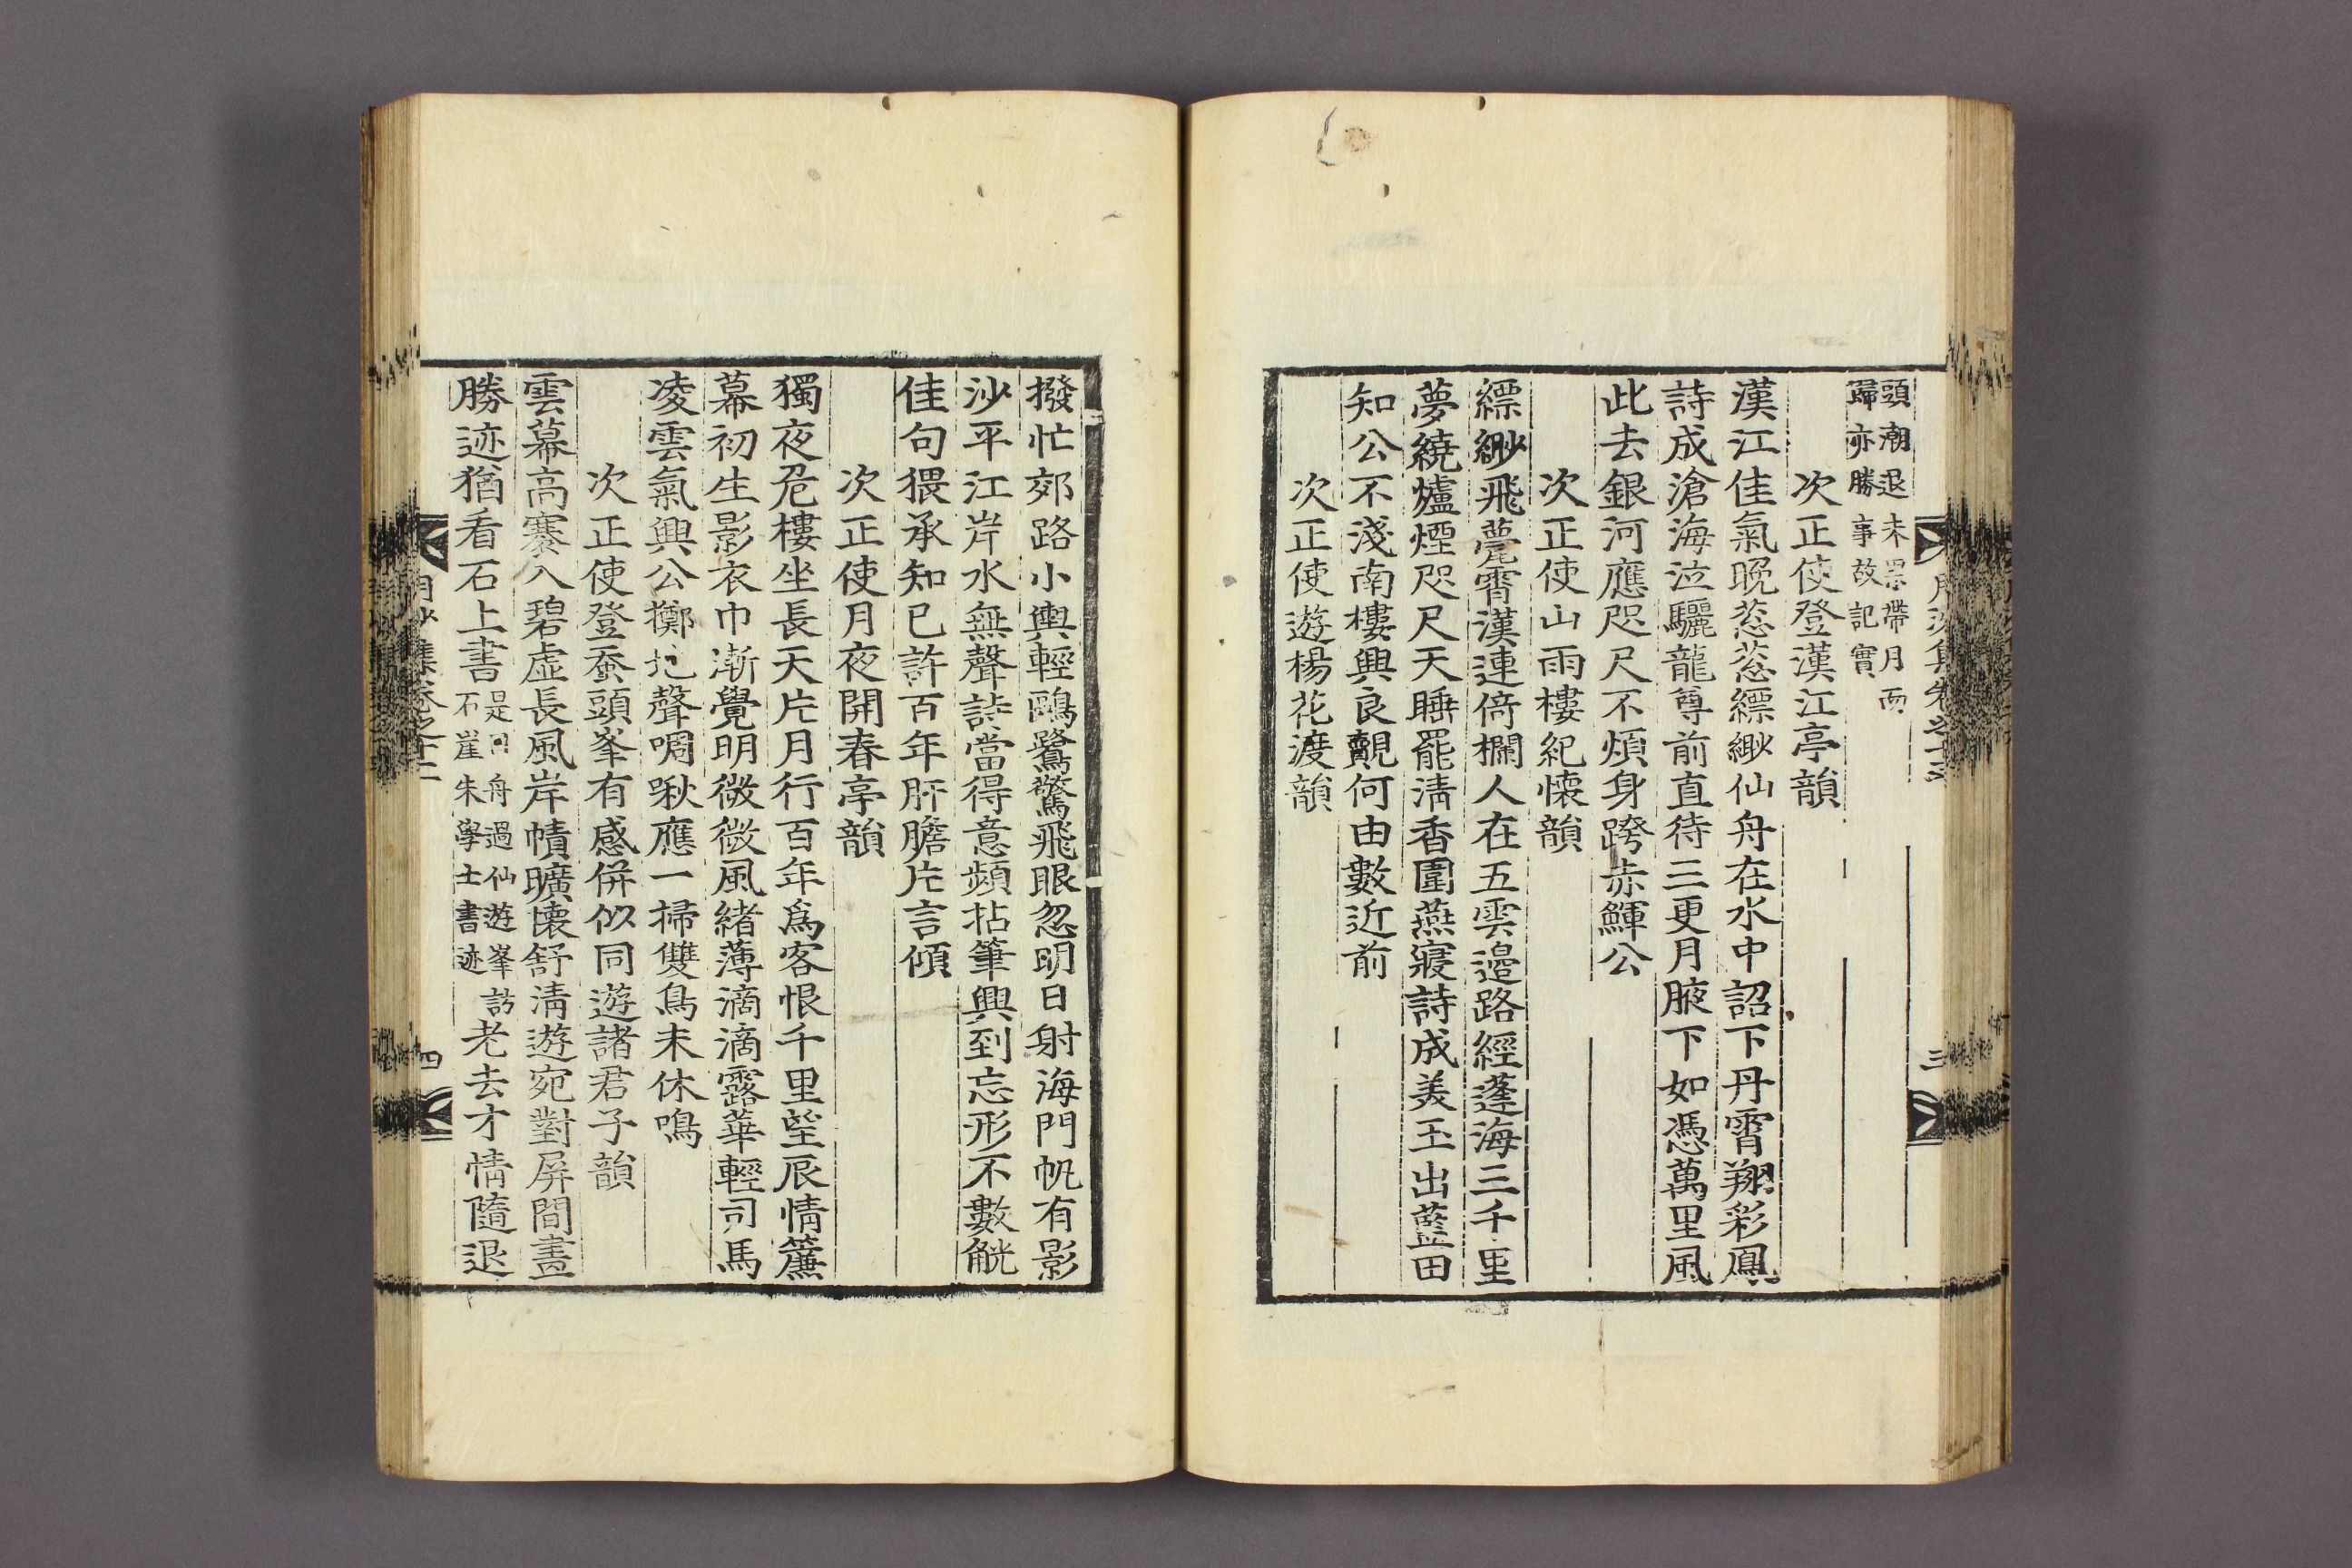 頭潮退未罷帶月而
歸亦勝事故記實
次正使登漢江亭韻
漢江佳氣晩葱葱縹緲仙舟在水中詔下丹霄翔彩鳳
詩成滄海泣驪龍尊前直待三更月腋下如憑萬里風
此去銀河應咫尺不煩身跨赤鯶公
次正使山雨樓紀懷韻
縹緲飛甍霄漢連倚欄人在五雲邊路經蓬海三千里
夢繞爐煙咫尺天睡罷淸香圍燕寢詩成美玉出藍田
知公不淺南樓興良覿何由數近前
次正使遊楊花渡韻
撥忙郊路小輿輕鷗鷺驚飛眼忽明日射海門帆有影
沙平江岸水無聲詩當得意頻拈筆興到忘形不數觥
佳句猥承知已許百年肝膽片言傾
次正使月夜開春亭韻
獨夜危樓坐長天片月行百年爲客恨千里望辰情簾
幕初生影衣巾漸覺明微微風緖薄滴滴露華輕司馬
凌雲氣興公擲地聲啁啾應一掃雙鳥未休鳴
次正使登蚕頭峯有感倂似同遊諸君子韻
雲幕高褰入碧虛長風岸幘曠懷舒淸遊宛對屛間畫
勝迹猶看石上書是日舟過仙遊峯訪石崖朱學士書迹老去才情隨退
月沙集卷之十二
三
四